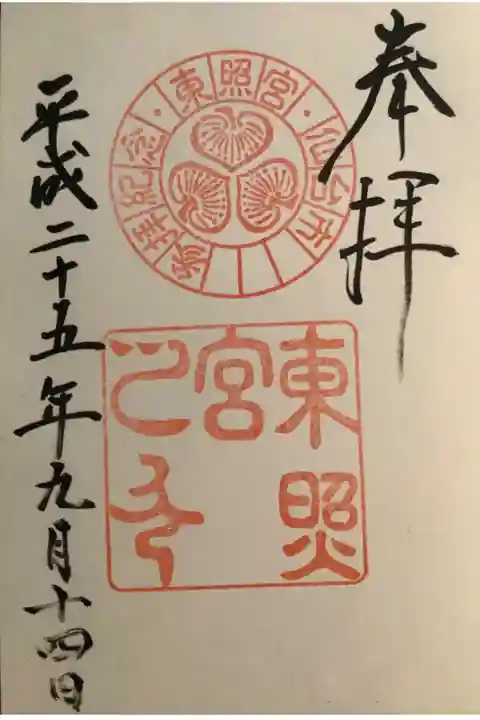 奉拝
東照宮
仙台市
参拝記念
東照
宮
之印
平成二十五年九月十四日